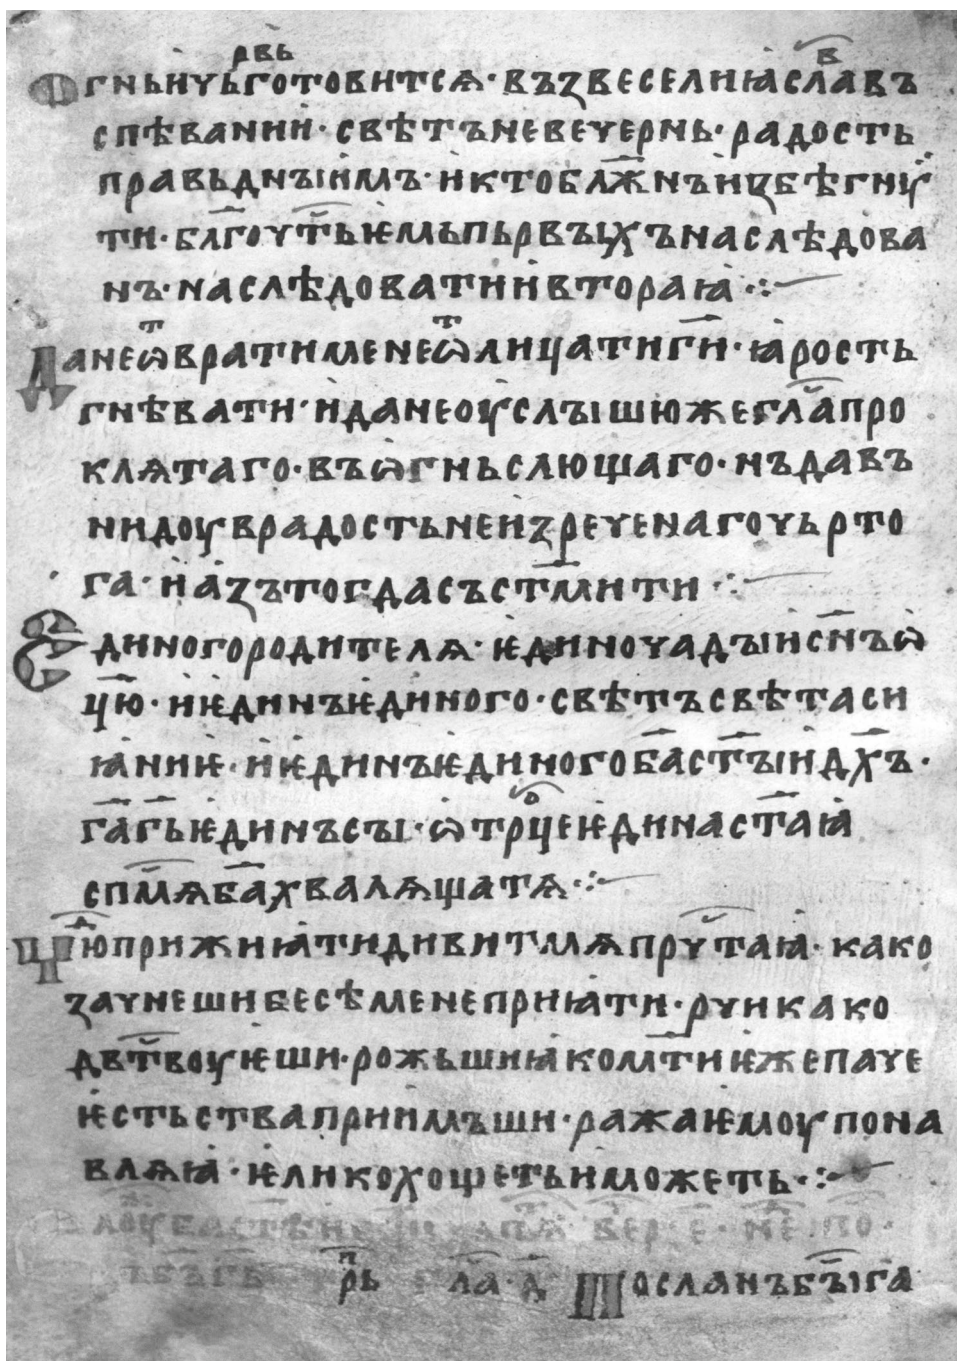 Ꙍгньи҆чь рвь готовитсѧ· въꙁвеселиꙗславъ
спѣвании· свѣтъневечернь· радость
правьднъіимъ· иктоблж҃нъиꙁбѣгнꙋ
ти· бл҃гоч҃тьѥмьпьрвъіхънаслѣдова
нъ·наслѣдоватиивтораꙗ ·:~
Данеѿвратименеѿлицатиги҃· ꙗрость
гнѣвати· иданеоуслъішюжегл҃апро
клѧтаго·въѡгньслющаго·нъдавъ
нидоувradостьнеиꙁреченагочьрто
га· иаꙁътогдасъст҃мити ·:~
Єдиногородителѧ· ѥдиночадъіисн҃ъѡ
ц҃ю· иѥдинъѥдиного·свѣтъсвѣтаси
ꙗниѥ·иѥдинъѥдиногоб҃аст҃ъіидх҃ъ·
г҃аг҃ьѥдинъсъі·ѡтрⷪ҇цеѥдинаст҃аꙗ
спм҃ѧб҃ахвалѧщатѧ·:~
Цⷭ҇їюприжниꙗтидивитмѧпрч҃таꙗ· како
ꙁачнешибесѣменеприꙗти·рчикако
дв҃твоуѥши·рожьшиꙗком҃тиѥжепаче
ѥстьстваприимъши·ражаѥмоупона
влѧꙗ·ѥликохощетьиможеть·:~
прⷣь гла· д҃ Посланъбъ҃іга